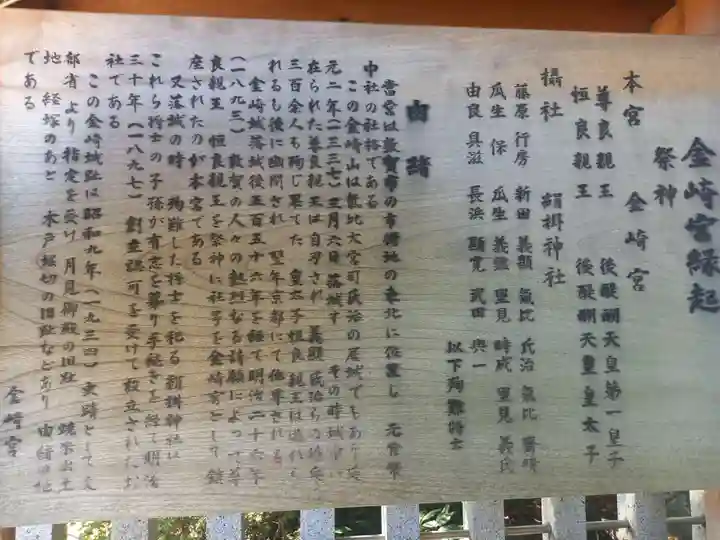 金崎宮縁起
祭神
本宮 金崎宮
尊良親王 後醍醐天皇第一皇子
恒良親王 後醍醐天皇皇太子
摂社 絹掛神社
藤原行房 新田義顕 氣比氏治 氣比齊晴
瓜生保 瓜生義鑑 里見時成 里見義氏
由良具滋 長浜顕寛 武田與一
以下殉難将士
由緒
当宮は敦賀市の市街地の東北に位置し 元官幣
中社の社格である
この金崎山は氣比大宮司氏治の居城でもあり延
元二年(一三三七)三月六日落城す その時城中に
在られた尊良親王は自刃され 義顕 氏治らの将兵
三百余人も殉じ果てた 皇太子恒良親王は逃れら
れるも後に幽閉され 翌年京都にて他界される
金崎城落城後五百五十六年を経て明治二十六年
(一八九三)敦賀の人々の熱烈なる請願によって尊
良親王 恒良親王を祭神に社号を金崎宮として鎮
座されたのが本宮である
又落城の時 殉難した将士を祀る絹掛神社は
これら将士の子孫が有志を募り手続きを経て明治
三十年(一八九七)創立認可を受けて設立されたお
社である
この金崎城趾は昭和九年(一九三四)史蹟として文
部省より指定を受け 月見御殿の旧趾 焼米出土
地 経塚のあと 木戸堀切の旧趾などあり 由緒の地
である
金崎宮